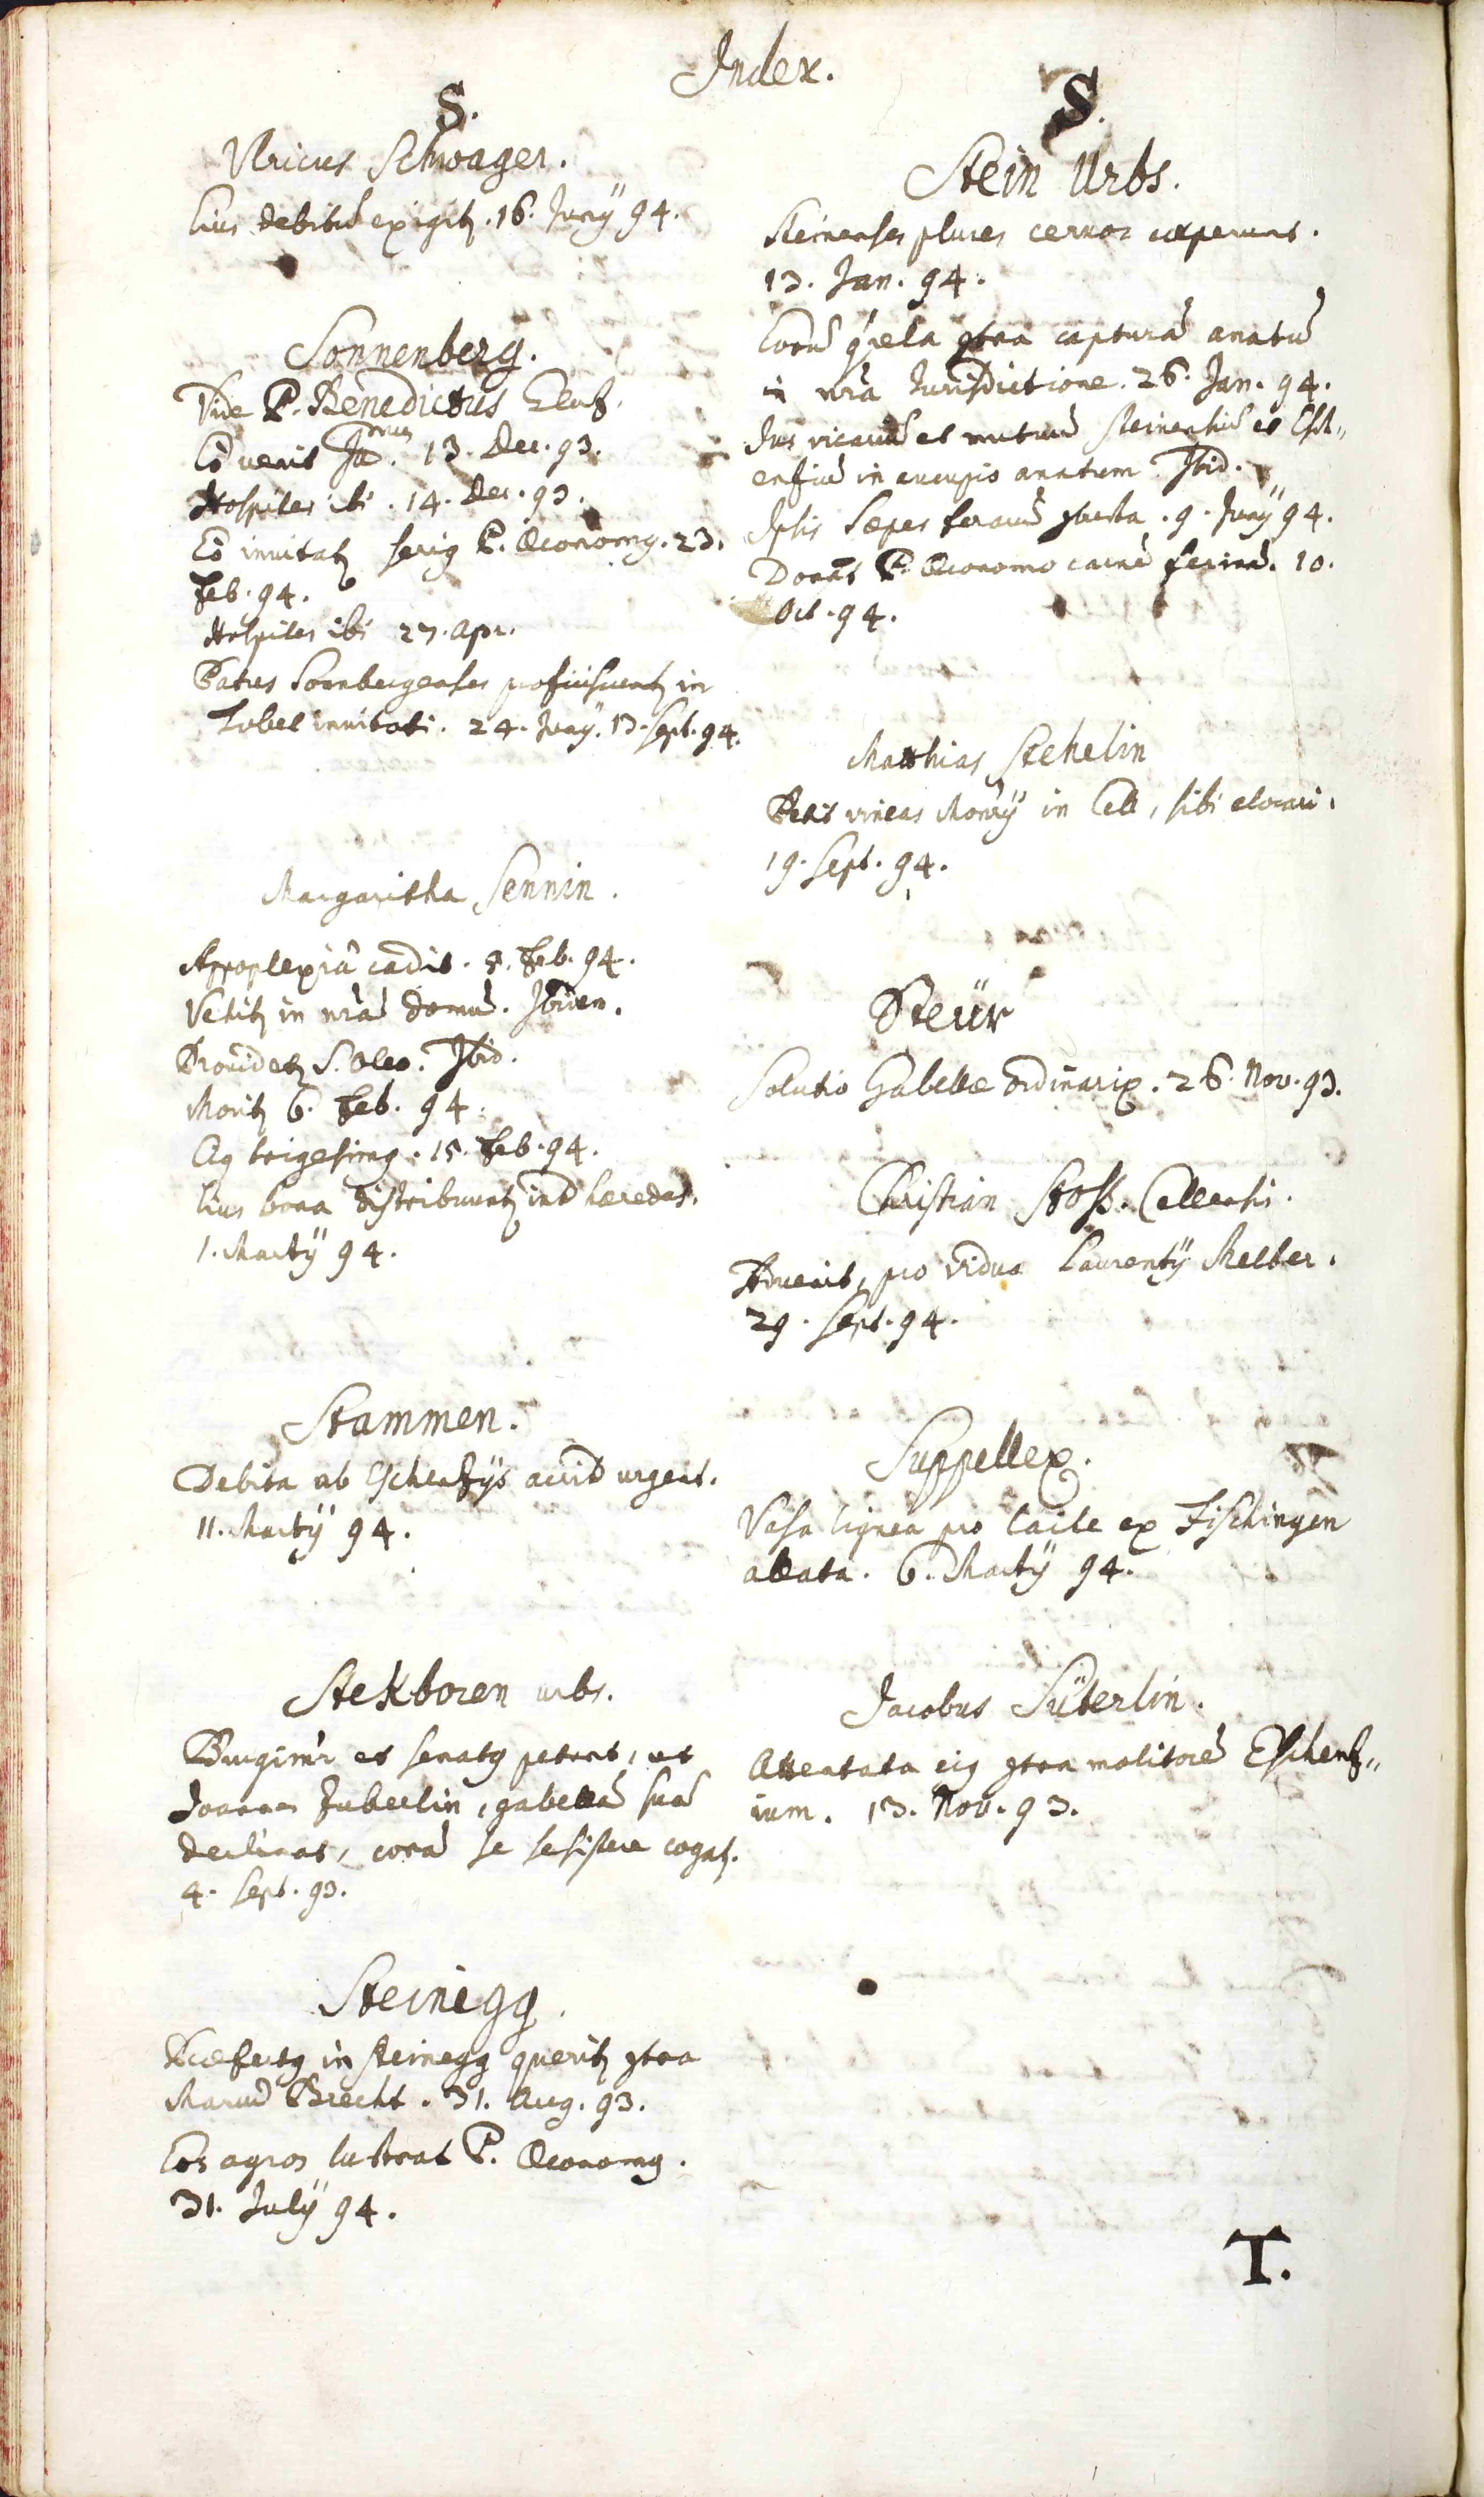 Index.
S.
Vlricus Schwager.
Eius debitū exigitꝫ. 16. Junÿ 94.
Sonnenberg.
Vide P. Benedictus
Eò venit 13. Dec. 93.
Hospites ibi. 14. Dec. 93.
Eò invitatꝫ seriꝰ P. Oeconomꝰ. 23.
Feb. 94.
Hospites ibi 27. Apr.
Patres Sonnbergenses proficiscuntꝫ in
Tobel invitati. 24. Junÿ. 13. Sept. 94.
Margaritha Sennin.
Apoplexiâ cadit. 5. Feb. 94.
Vehitꝫ in nr̃ā domū. Ibidem.
Providetꝫ S. Oleo. Ibid.
Moritꝫ 6. Feb. 94.
Eiꝰ trigesimꝰ. 15. Feb. 94.
Eius bona distribuuntꝫ int̃ hæredes.
1. Martÿ 94.
Stammen.
Debita ab Eschentzÿs acrit̃ urgent.
11. Martÿ 94.
Stekboren urbs.
Burgim̃r et senatꝰ petunt, ut
Joannes Zuberlin, gabellā suā
declinas, corā se se sistere cogatꝫ.
4. Sept. 93.
Steinegg.
Præfectꝰ in Steinegg queritꝫ ꝯtra
Marcū Brecht. 31. Aug. 93.
Eos agros lustrat P. Oeconomꝰ.
31. Julÿ 94.
S.
Stein Urbs.
Steinenses plures cervos ceperunt.
13. Jan. 94.
Eorū q̃rela ꝯtra capturā anatū
in nr̃a Jurisdictione. 26. Jan. 94.
Jus vicanū et mutuū Steinensiū et Esch„
ensiū in aucupio anatum Ibid.
Ipsis Sæpes ferarū 9. Junÿ 94.
Donat P. Oeconomo carnē ferinā. 10.
Oct. 94.
Matthias Stehelin
Petit vineas Monrÿ in Cell, sibi elocari.
19. Sept. 94.
Steür
Solutio Gabellæ ordinariæ. 26. Nov. 93.
Christian Stoß. Cellensis.
pro vidua Laurentÿ Melber.
29. Sept. 94.
Suppellex.
Vasa lignea pro lacte ex Fischingen
allata. 6. Martÿ 94.
Jacobus Süterlin.
Attentata eiꝰ ꝯtra molitorē Eschentz„
ium. 13. Nov. 93.
T.